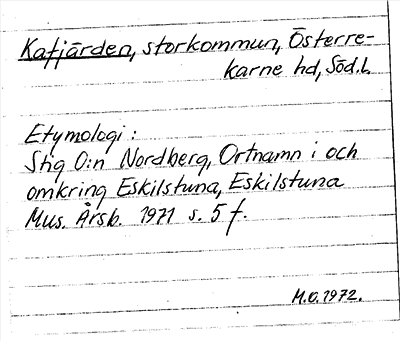 Kafjärden, storkommun, Österre-
karne hd, Söd.l.
Etymologi:
Stig O:n Nordberg, Ortnamn i och
omkring Eskilstuna, Eskilstuna
Mus. Årsb. 1971 s. 5 f.
M.O.1972.